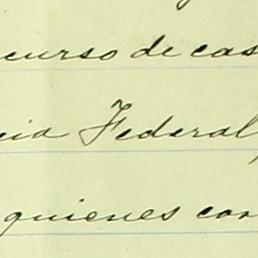 curso de cas
cia Federal,
quienes con